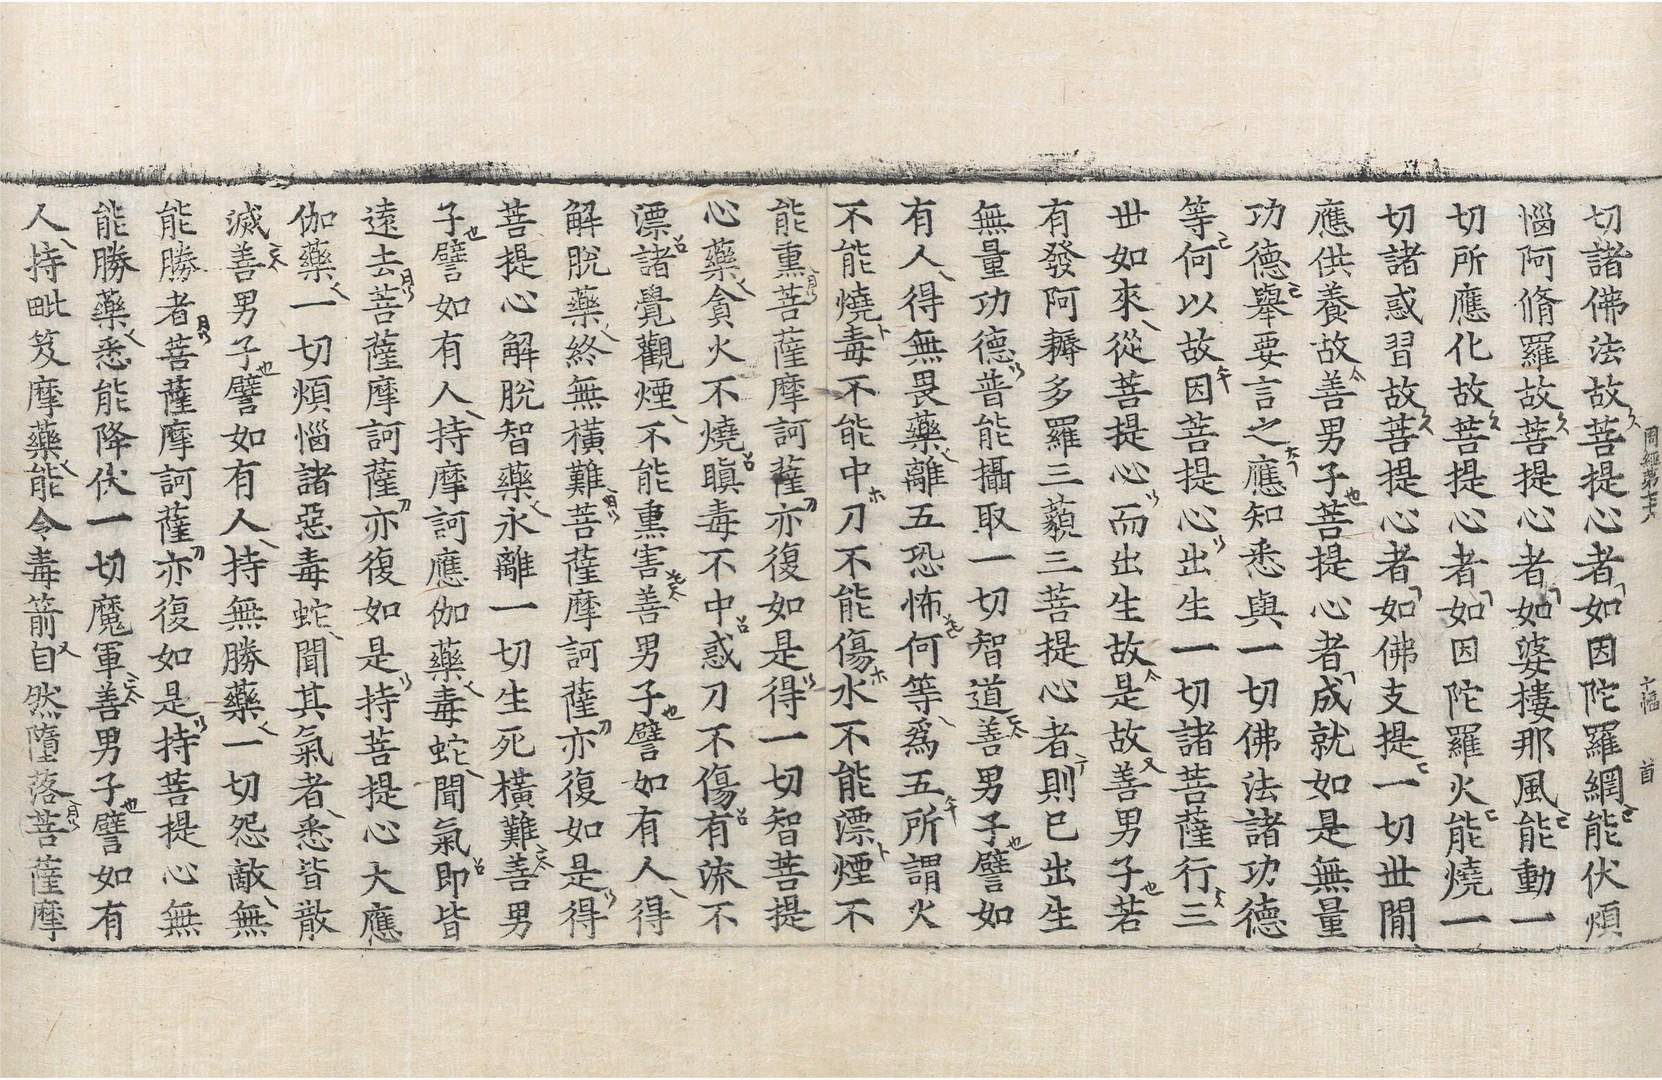 周經第七六 十幅 首
切諸佛法故菩提心者如因陀羅網能伏煩
惱阿脩羅故菩提心者如婆樓那風能動一
切所應化故菩提心者如因陀羅火能燒一
切諸惑習故菩提心者如佛支提一切世間
應供養故善男子菩提心者成就如是無量
功德舉要言之應知悉與一切佛法諸功德
等何以故因菩提心出生一切諸菩薩行三
世如來從菩提心而出生故是故善男子若
有發阿耨多羅三藐三菩提心者則已出生
無量功德普能攝取一切智道善男子譬如
有人得無畏藥離五恐怖何等爲五所謂火
不能燒毒不能中刀不能傷水不能漂煙不
能熏菩薩摩訶薩亦復如是得一切智菩提
心藥貪火不燒瞋毒不中惑刀不傷有流不
漂諸覺觀煙不能熏害善男子譬如有人得
解脫藥終無橫難菩薩摩訶薩亦復如是得
菩提心解脫智藥永離一切生死橫難善男
子譬如有人持摩訶應伽藥毒蛇聞氣即皆
遠去菩薩摩訶薩亦復如是持菩提心大應
伽藥一切煩惱諸惡毒蛇聞其氣者悉皆散
滅善男子譬如有人持無勝藥一切怨敵無
能勝者菩薩摩訶薩亦復如是持菩提心無
能勝藥悉能降伏一切魔軍善男子譬如有
人持毗笈摩藥能令毒箭自然墮落菩薩摩